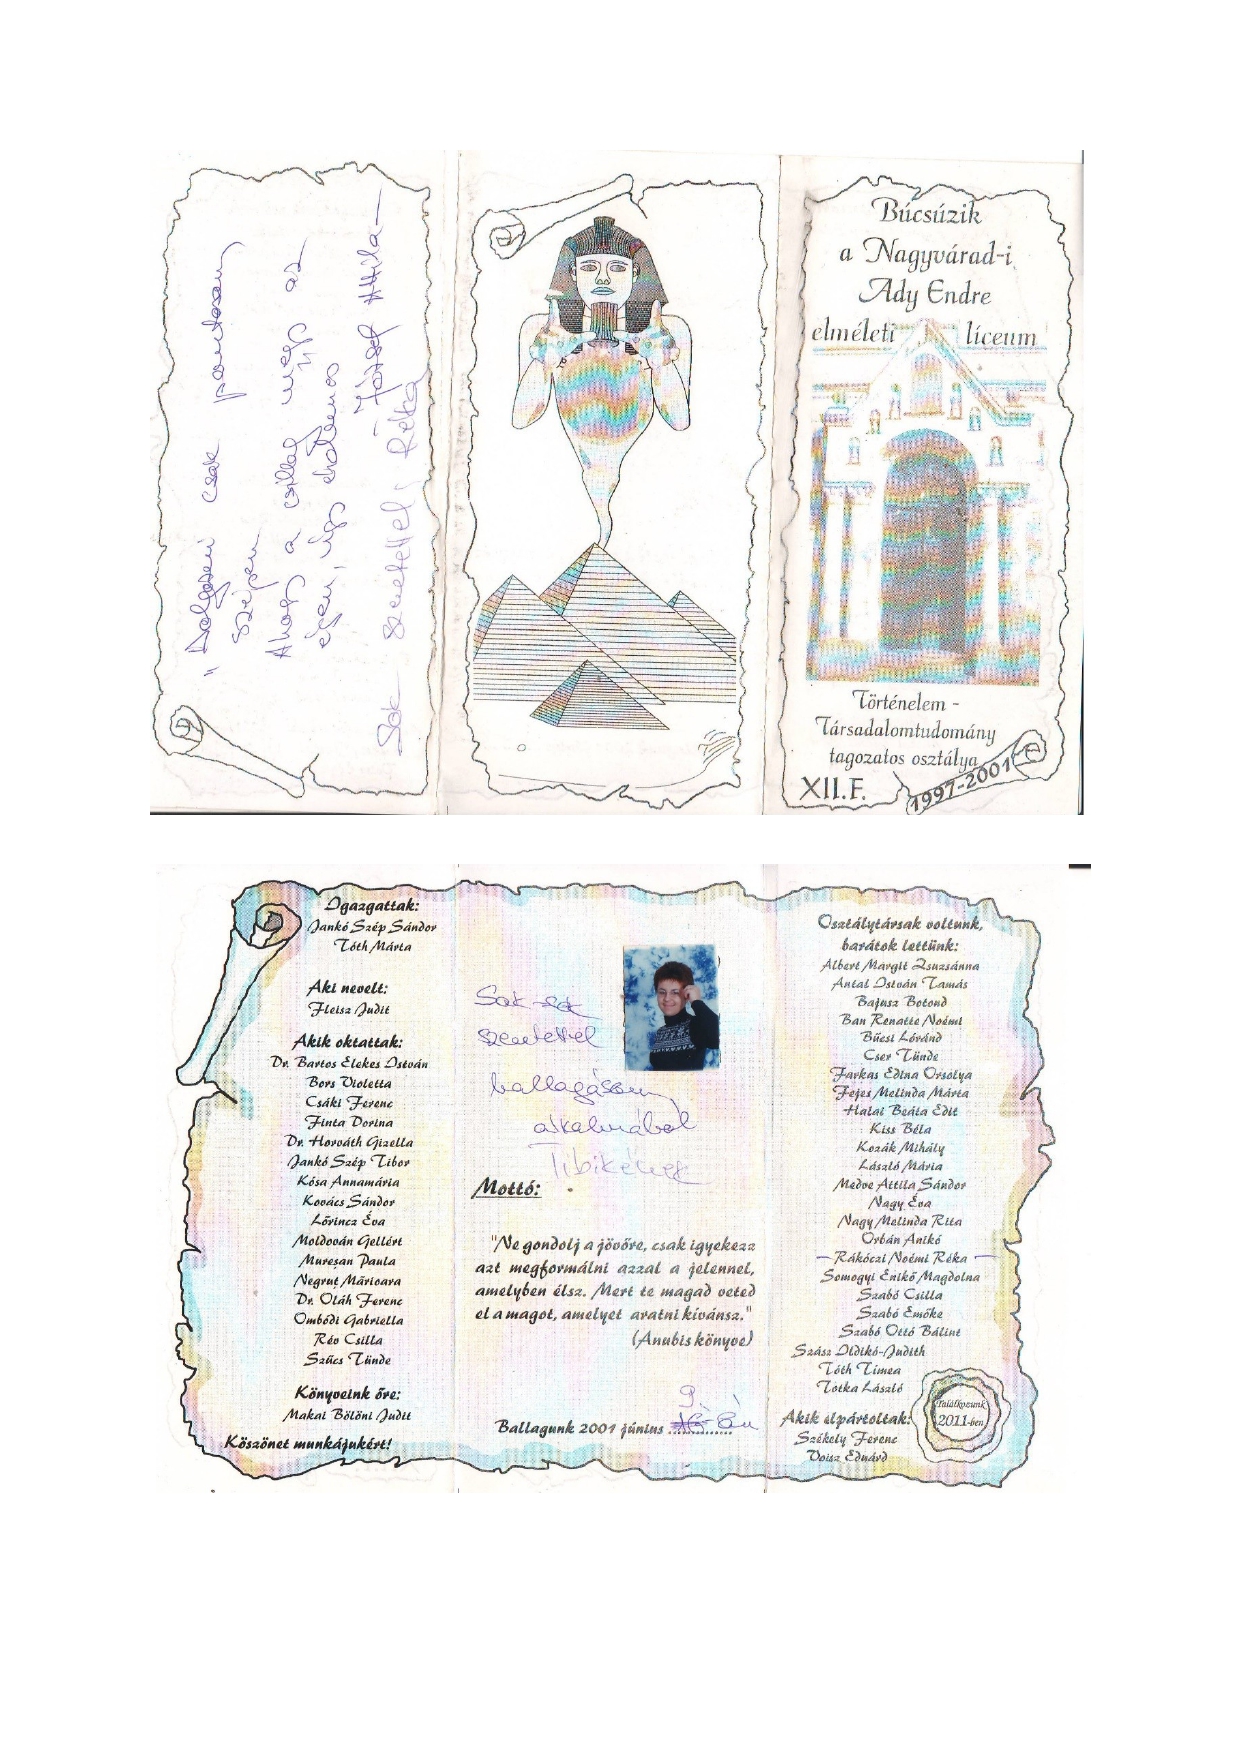 "Dolgozni csak pontosan,
szépen
Ahogy a csillag megy az
égen, úgy érdemes"
-József Attila-
Sok szeretettel, Réka
Búcsúzik
a Nagyvárad-i
Ady Endre
elméleti líceum
Történelem -
Társadalomtudomány
tagozatos osztálya
XII.F.
1997-2001
Igazgattak:
Jankó Szép Sándor
Tóth Márta
Aki nevelt:
Fleisz Judit
Akik oktattak:
Dr. Bartos Elekes István
Bors Violetta
Csáki Ferenc
Finta Dorina
Dr. Horváth Gizella
Jankó Szép Tibor
Kósa Annamária
Kovács Sándor
Lőrincz Éva
Moldován Gellért
Mureşan Paula
Negrut Mărioara
Dr. Oláh Ferenc
Ombódi Gabriella
Rév Csilla
Szűcs Tünde
Könyveink őre:
Makai Bölöni Judit
Köszönet munkájukért!
Sok-sok
szeretettel
ballagásom
alkalmából
Tibikének
Mottó:
"Ne gondolj a jövőre, csak igyekezz
azt megformálni azzal a jelennel,
amelyben élsz. Mert te magad veted
el a magot, amelyet aratni kívánsz."
(Anubis könyve)
Ballagunk 2001 június 9.-én
Osztálytársak voltunk,
barátok lettünk:
Albert Margit Zsuzsánna
Antal István Tamás
Bajusz Botond
Ban Renatte Noémi
Bűcsi Lóránd
Cser Tünde
Farkas Edina Orsolya
Fejes Melinda Márta
Halai Beáta Edit
Kiss Béla
Kozák Mihály
László Mária
Medve Attila Sándor
Nagy Éva
Nagy Melinda Rita
Orbán Anikó
- Rákóczi Noémi Réka -
Somogyi Enikő Magdolna
Szabó Csilla
Szabó Emőke
Szabó Ottó Bálint
Szász Ildikó-Judith
Tóth Tímea
Totka László
Akik elpártoltak:
Székely Ferenc
Voisz Eduárd
Találkozunk
2011-ben